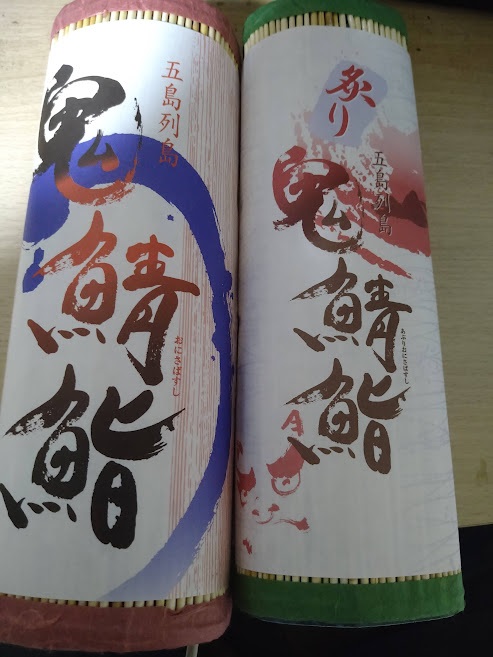 五島列島
鬼鯖鮨
おにさばすし
炙り
五島列島
鬼鯖鮨
あぶりおにさばすし
A